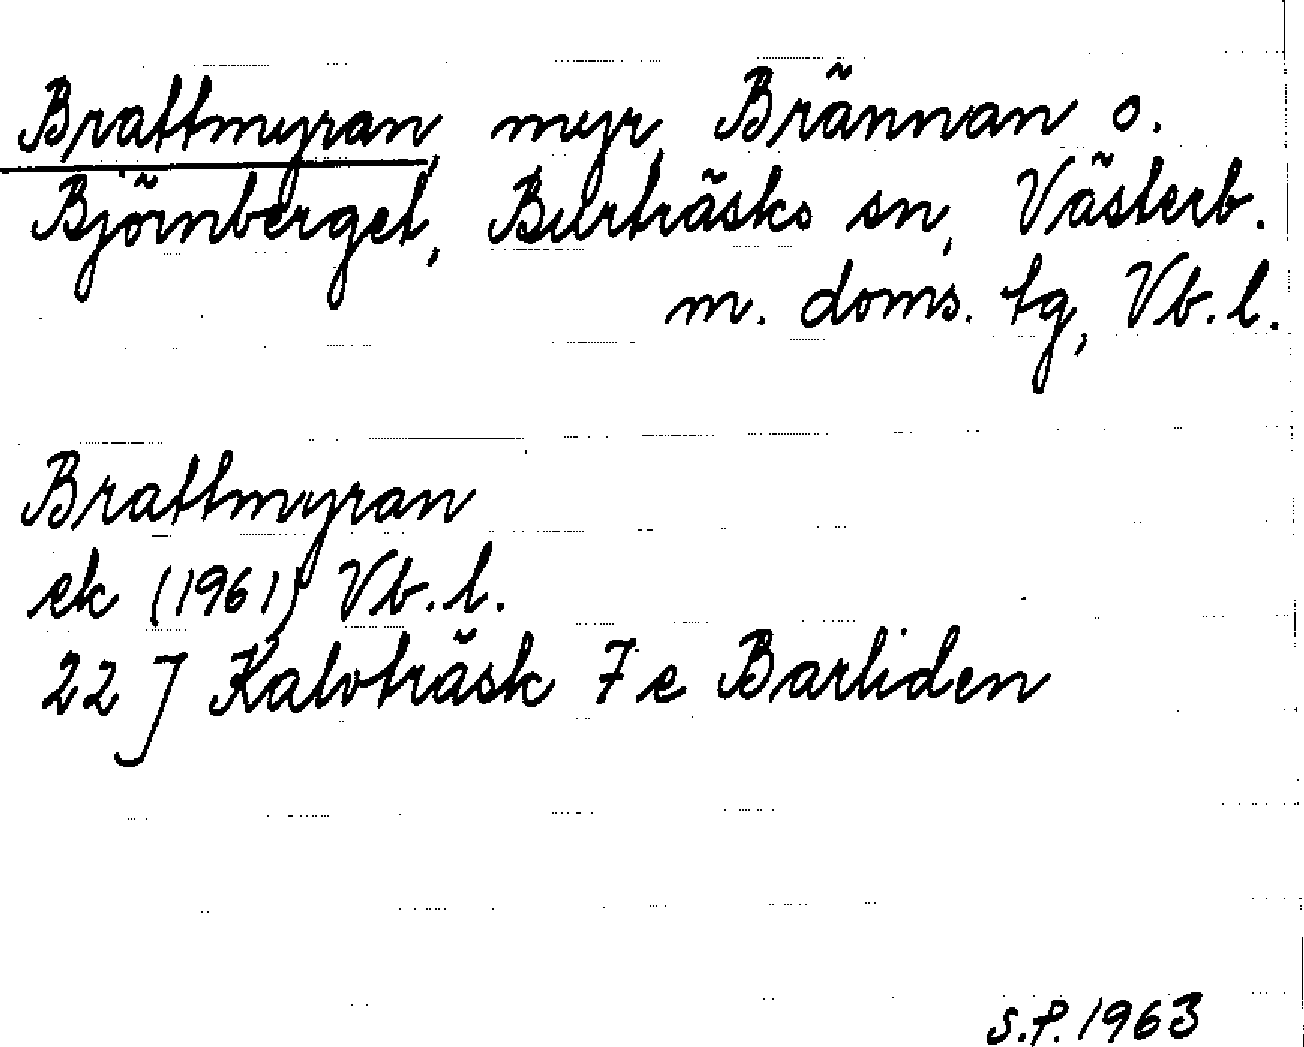 Brattmyran, myr, Brännan o.
Björnberget, Burträsks sn, Västerb.
m. doms. tg, Vb. l.
Brattmyran
ek (1961) Vb. l.
22 J Kalvträsk 7 e Barliden
S.P. 1963